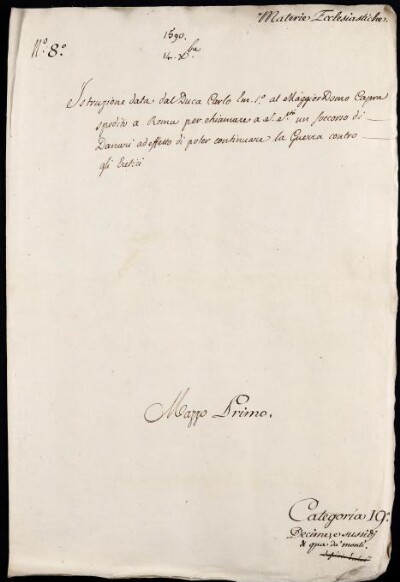 Materie Ecclesiastiche.
N.º 8.º
1590.
14. Xbre
Istruzione data dal Duca Carlo Em. 1.º al Maggior Domo Capra
spedito a Roma per chiamare a S. Stà un soccorso di
Danari ad effetto di poter continuare la Guerra contro
gli Eretici
Mazzo Primo.
Categoria 19.
Decime, e sussidj
di qua da' monti.